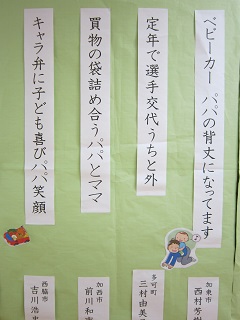 ベビーカー パパの背丈になってます
加東市
西村芳
定年で選手交代うちと外
多可町
三村由美
買物の袋詰め合うパパとママ
加西市
前川和
キャラ弁に子ども喜びパパ笑顔
西脇市
吉川浩